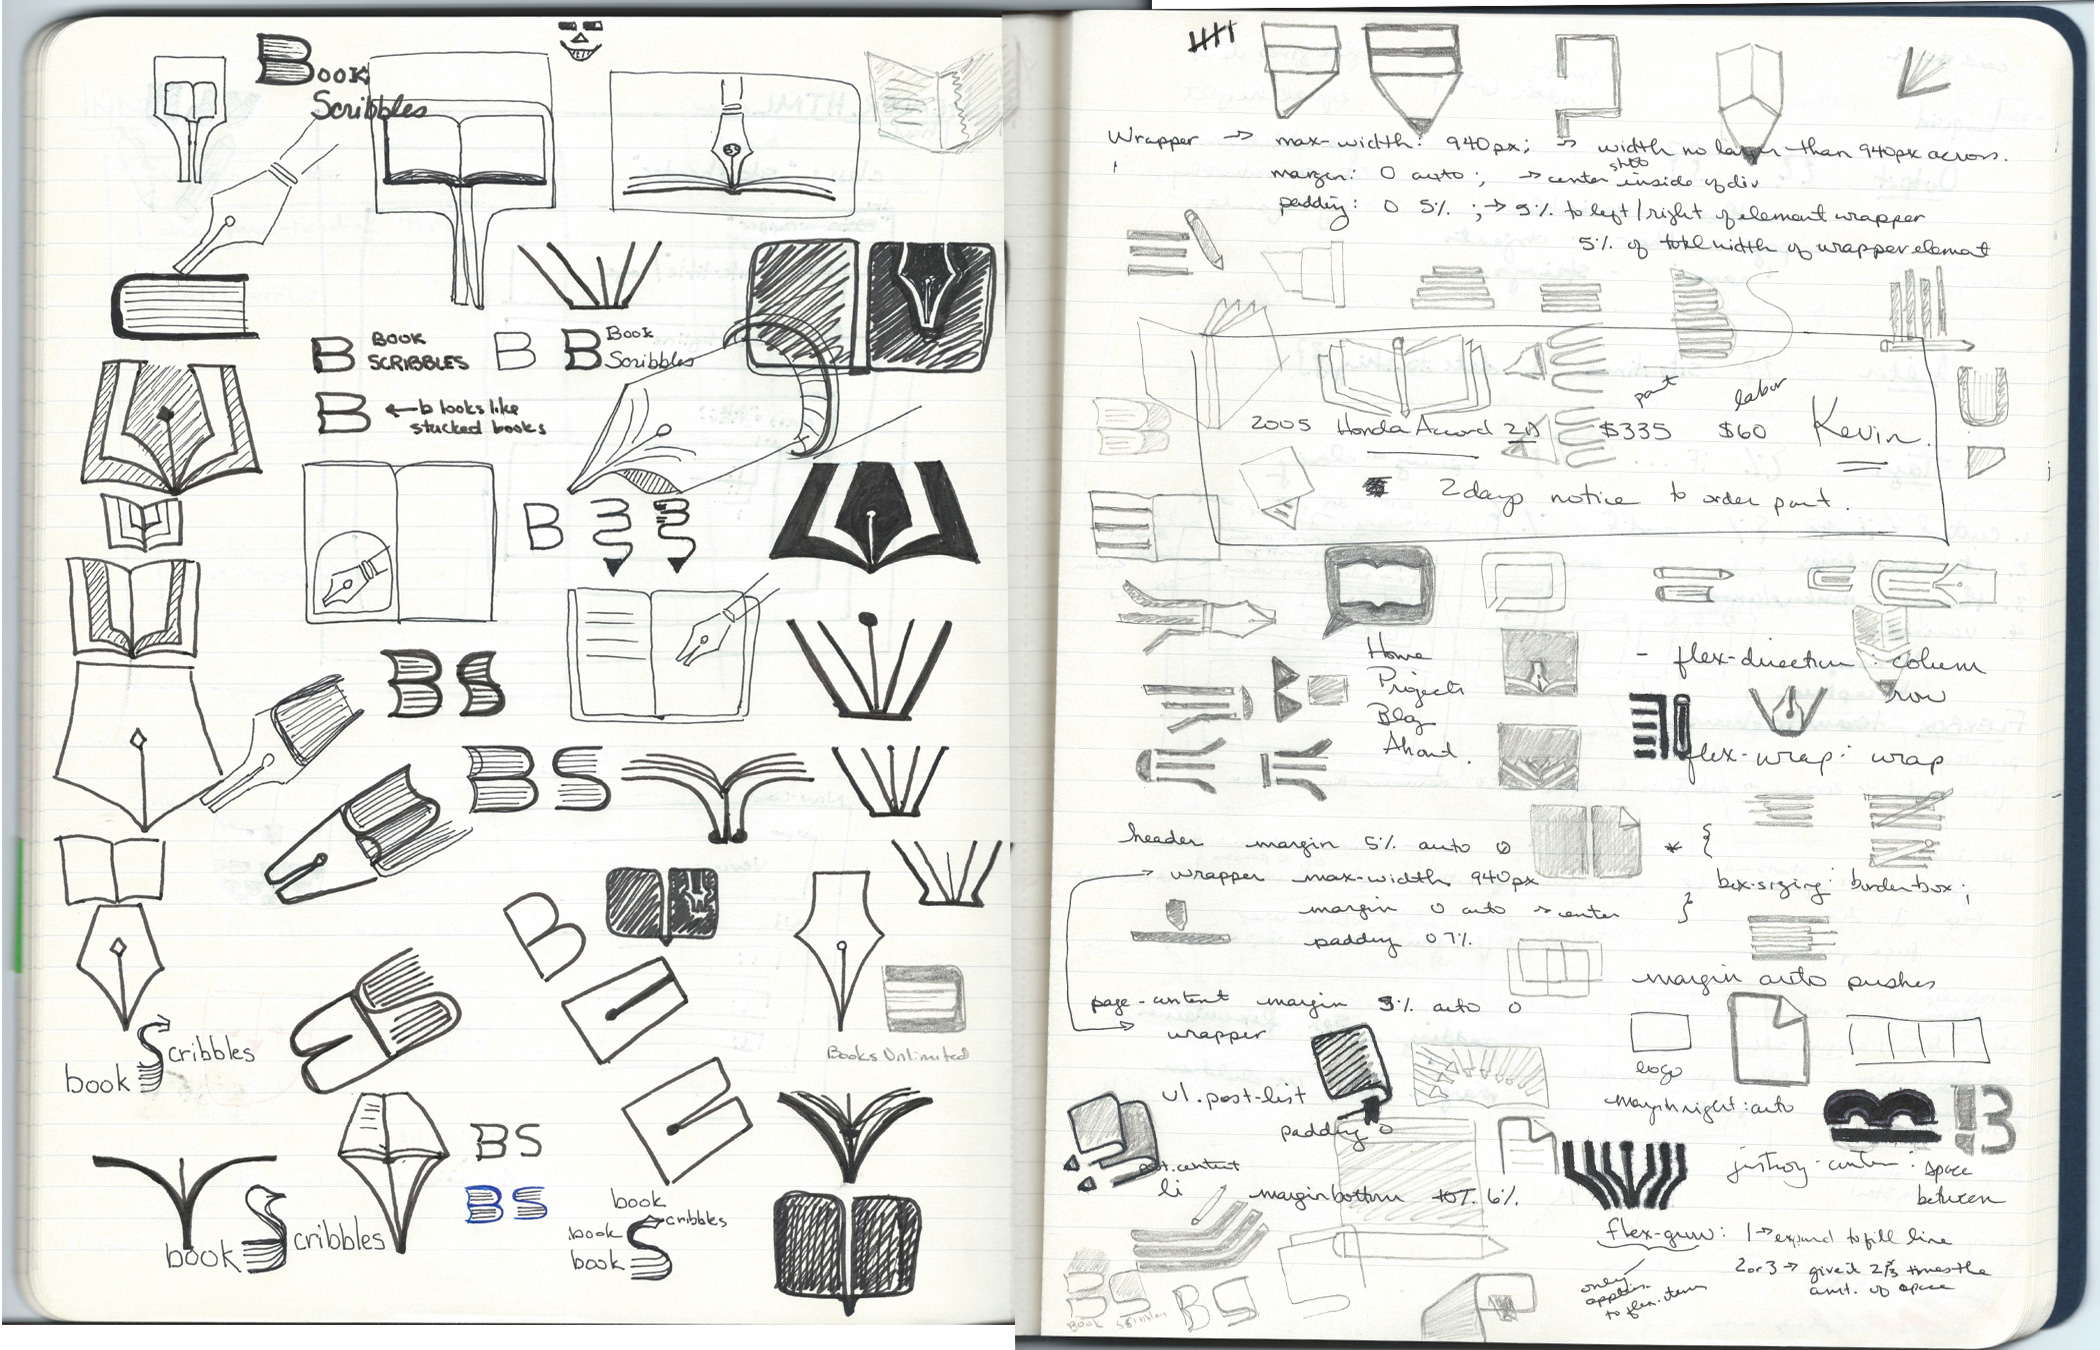 Book
Scribbles
BOOK
SCRIBBLES
B
B
Book
Scribbles
B
← b looks like
stacked books
B
BS
BS
B
book Scribbles
Books Unlimited
BS
BS
book Scribbles
book
book Scribbles
book
Wrapper → max-width: 940px; → width no larger than 940px across.
margin: 0 auto; → center inside of div
padding: 0 5%; → 5% to left/right of element wrapper
5% of total width of wrapper element
part
labor
2005 Honda Accord $335 $60 Kevin.
2 days notice to order part.
Home
Projects
Blog
About.
- flex-direction: column
row
flex-wrap: wrap
header margin 5% auto 0
wrapper max-width 940px
margin 0 auto → center
padding 0 7%
* {
box-sizing: border box;
}
margin auto pushes
page-content margin 5% auto 0
wrapper
logo
margin right: auto
ul.post-list
padding 0
B
post.content
li margin bottom 10% 6%
justify-content: space
between
flex-grow: 1 → expand to fill line
2 or 3 → give it 2/3 times the
amt. of space
only
applies
to flex-item
BS
Book Scribbles
BS